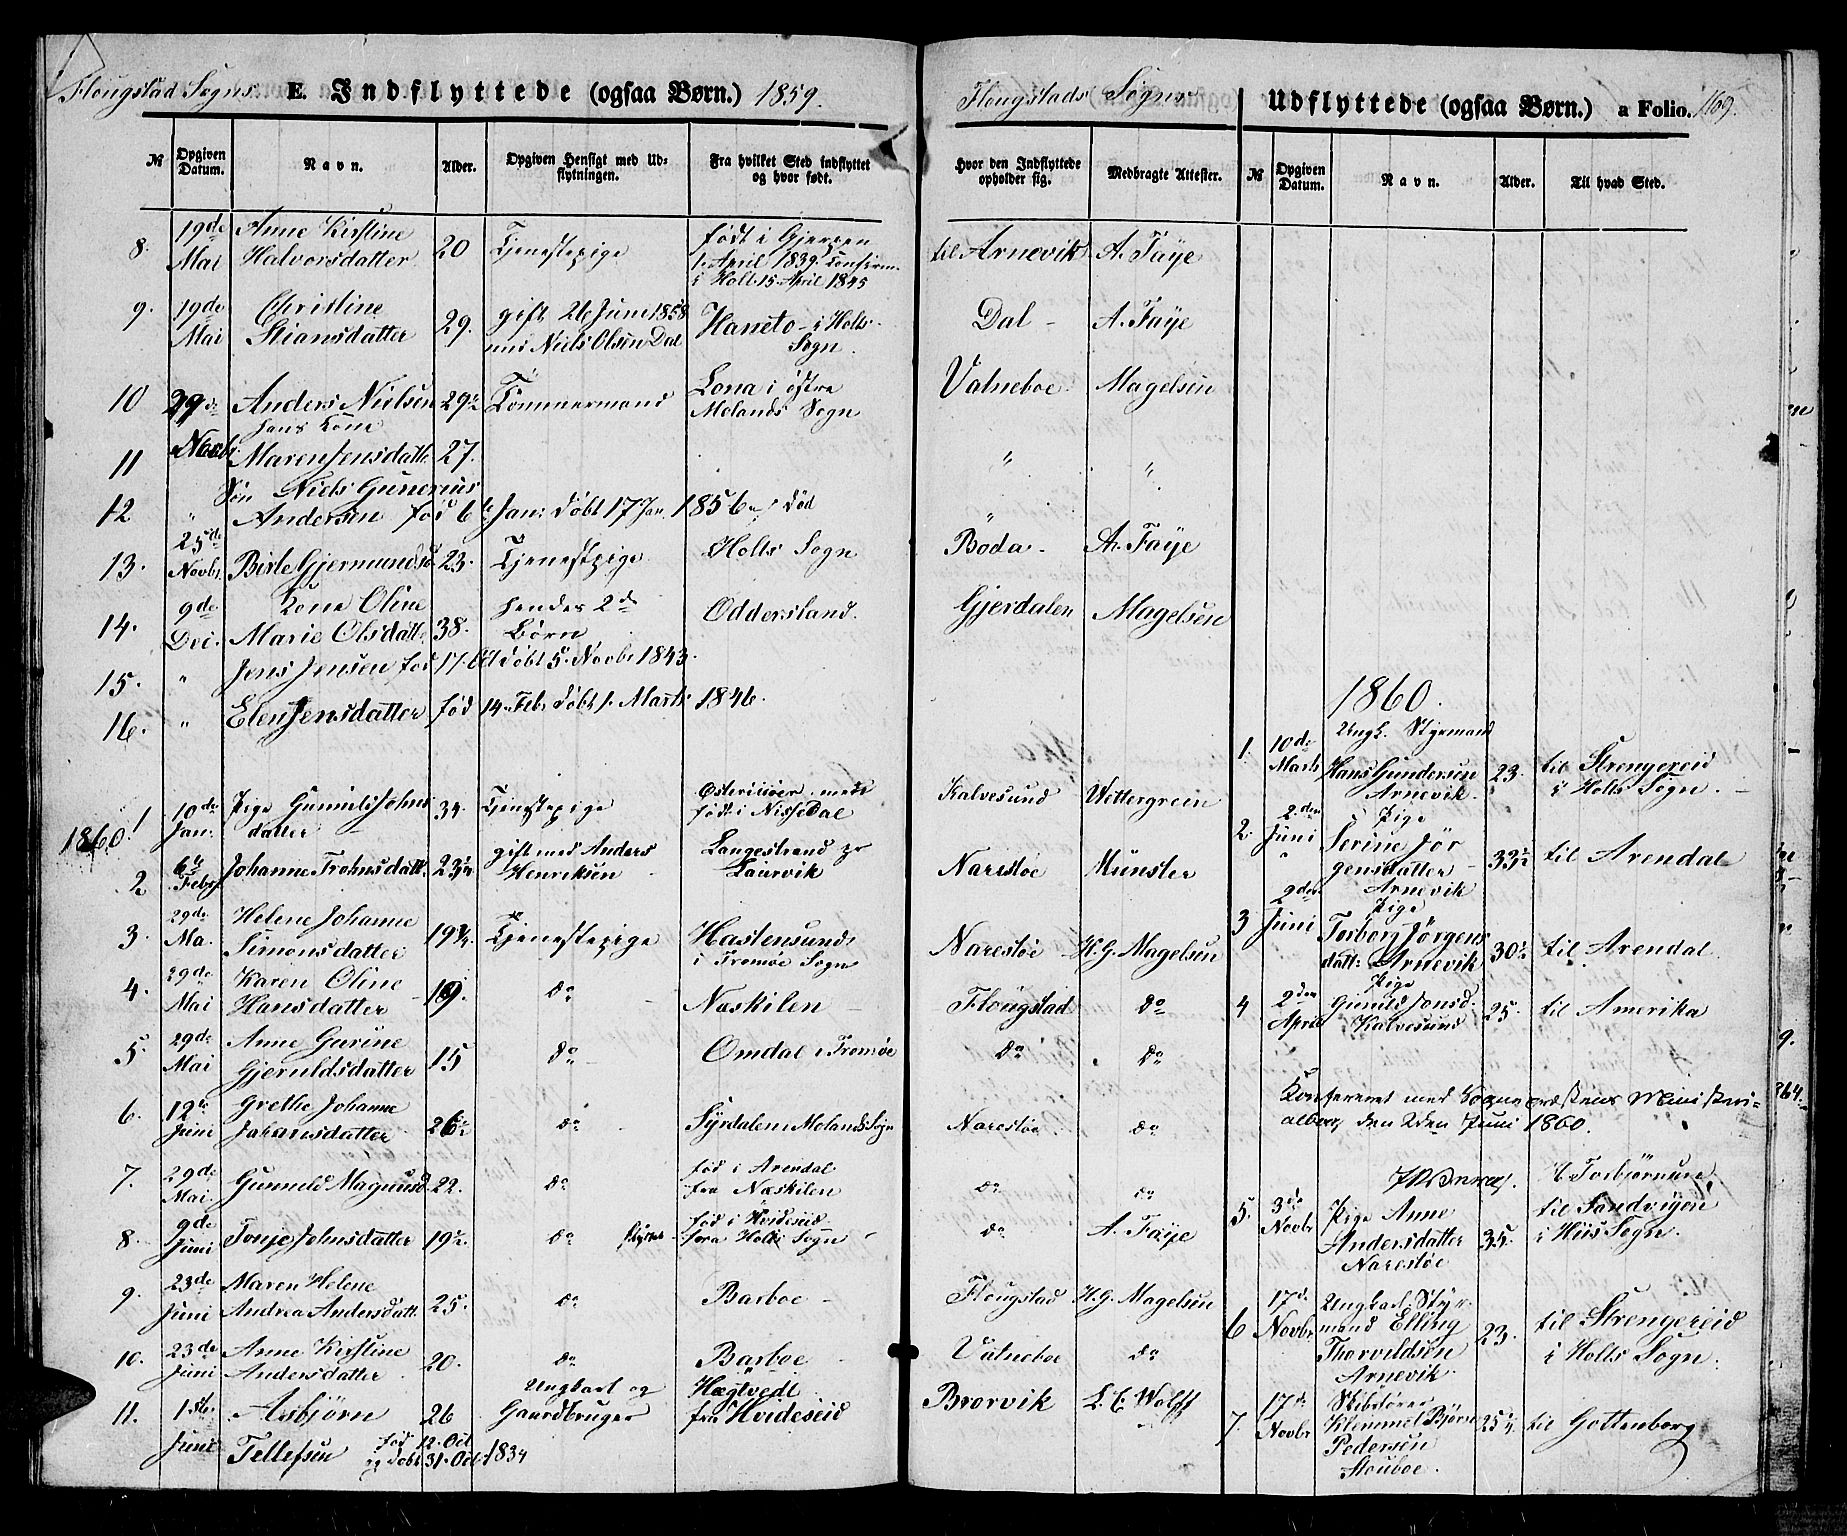 Flougstad Sogns E. Indflyttede (ogsaa Børn.) 1859.
№ Opgiven Datum. Navn. Alder. Opgiven Hensigt med Udflytningen. Fra hvilket Sted indflyttet og hvor født.
8. 19de Mai Anne Kirstine Halvorsdatter 20 Tjenestepige født i Gjerpen 1. April 1839. Confirm. i Holt 15 April 1845
9. 19de Mai Christine Stiansdatter 29. gift 26 Juni 1858 med Niels Olsen Dal Haneto i Holts Sogn.
10 29de Novbr Anders Nielsen 29½ Tømmermand Lona i østre Molands Sogn
hans Kone
11 Maren Jensdatt. 27.
Søn Niels Gunerius
12 " Andersen fød 6te Jan: døbt 17 Jan. 1856 død
13. 25de Novbr. Birte Gjermundsd. 23. Tjenestepige Holts Sogn
14. 9de Dec. Kone Oline Marie Olsdatte 38. hendes 2de Børn Oddersland.
15. " Jens Jensen fød 17. Oct døbt 5. Novbr 1843.
16. " Elen Jensdatter fød 14. Febr døbt 1. Marts 1846.
1860.
1 10de Jan: Pige Gunild Johnsdatter 34. Tjenestepige Østeriisøer, med født i Nissedal
2 6te Febr. Johanne Trohnsdatt. 23½ gift med Anders Henriksen Langestrand pr Laurvik
3. 29de Ma. Helene Johanne Simonsdatter 19¾ Tjenestepige Hastensund i Tromøe Sogn
4. 29de Mai Karen Oline Hansdatter 19. do Næskilen
5. 29de Mai Anne Gurine Gjeruldsdatter 15 do Omdal i Tromøe
6. 12te Juni Grethe Johanne Johansdatter 26½ do Syrdalen Molands Sogn
7. 29de Mai. Gunnild Magnusd. 22. do fød i Arendal fra Næskilen
8. 9de Juni Tonje Johnsdatter 19½ do flyttet fød i Hvideseid fra Holts Sogn
9. 23de Juni Maren Helene Andrea Andersdatt. 25. do Barboe
10. 23de Juni Anne Kirstine Andersdatter 20. do Barboe
11. 1ste Juni Asbjørn Tellefsen 26 Ungkarl og Gaardbruger Hægtvedt fra Hvideseid
fød 12. Oct og døbt 31. Oct. 1834
Flougstads Sogn Udflyttede (ogsaa Børn.) a Folio. 169.
Hvor den Indflyttede opholder sig. Medbragte Attester. № Opgiven Datum. Navn. Alder. Til hvad Sted.
til Arnevik A. Faye
Dal A. Faye
Valneboe Magelsen
" "
Boda A. Faye
Gjerdalen Magelsen
Kalvesund Wettergrein
Narestøe Münster
Narestøe H.G. Magelsen
Flougstad do
do do
Narestøe do
do do
do A. Faye
Flougstad H.G. Magelsen
Valneboe do
Brorvik L. C. Wolff
1860.
1. 10de Marts Ungk. Styrmand Hans Gundersen Arnevik. 23. til Strengereid i Holts Sogn.
2. 2den Juni Pige Serine Jørgensdatter Arnevik 33½ til Arendal
3 2den Juni Pige Torborg Jørgensdatt: Arnevik 30½ til Arendal
4 2den April Pige Gunild Jonsd. Kalvesund 25. til Amerika
Konfereret med Sognepræstens Ministerialbog den 2den Juni 1860.
5. 3de Novbr Pige Anne Andersdatter Narestøe 35. til Sandvigen i Hiis Sogn.
6 17de Novbr Ungkarl Styrmand Elling Thorvildsen Arnevik. 23. til Strengereid i Holts Sogn.
7. 17de Novbr Skibstømr. Klemmet Bjørn Pedersen Stouboe. 25¼ til Gottenborg